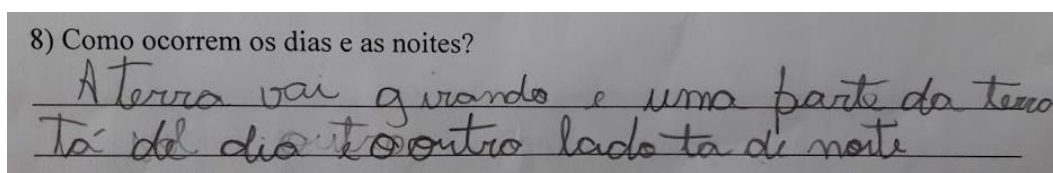 8) Como ocorrem os dias e as noites?
A Terra vai girando e uma parte da terra
Tá de dia e o outro lado ta de noite